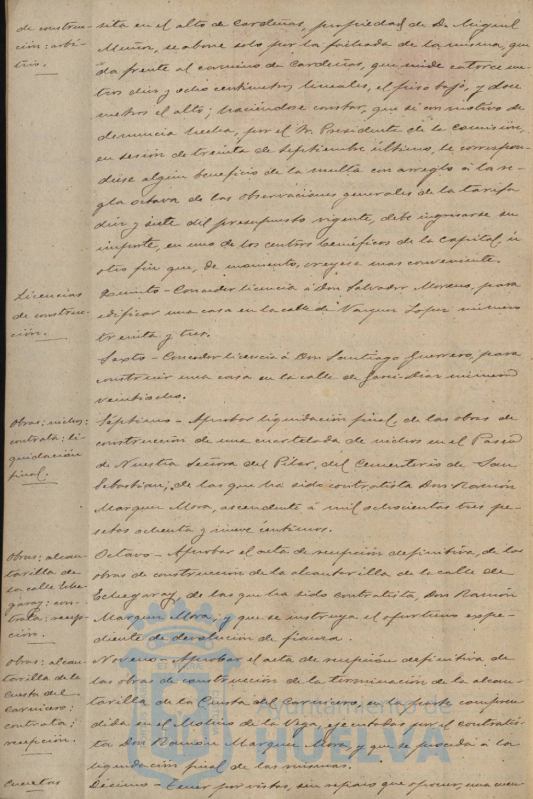 de construc-
ción: arbi-
trio.
sita en el alto de Cardeñas, propiedad de D. Miguel
Muñoz, se abone solo por la fachada de la misma, que
da frente al camino de Cardeñas, que mide catorce me-
tros diez y ocho centímetros lineales, el piso bajo, y doce
metros el alto; haciéndose constar, que si con motivo de
denuncia hecha, por el Sr. Presidente de la Comisión,
en sesión de treinta de Septiembre último, se correspon-
diese algún beneficio de la multa con arreglo á la re-
gla octava de las observaciones generales de la tarifa
diez y siete del presupuesto vigente, debe ingresarse su
importe, en uno de los centros benéficos de la capital, ú
otro fin que, de momento, creyese mas conveniente.
Licencias
de construc-
ción.
Quinto - Conceder licencia á Don Salvador Moreno, para
edificar una casa en la calle de Vazquez Lopez número
treinta y tres.
Sexto - Conceder licencia á Don Santiago Guerrero, para
construir una casa en la calle de Garci-Diaz número
veintiocho.
Obras: nichos:
contrata: li-
quidación
final.
Séptimo - Aprobar liquidación final, de las obras de
construcción de una cuartelada de nichos en el Paseo
de Nuestra Señora del Pilar, del Cementerio de San
Sebastian, de las que ha sido contratista Don Ramón
Marquez Mora, ascendente á mil ochocientos tres pe-
setas ochenta y nueve céntimos.
Obras: alcan-
tarilla de
la calle Eche-
garay: con-
trata: recep-
ción.
Octavo - Aprobar el acta de recepción definitiva, de las
obras de construcción de la alcantarilla de la calle de
Echegaray, de las que ha sido contratista, Don Ramón
Marquez Mora; y que se instruya el oportuno expe-
diente de devolución de fianza.
Obras: alcan-
tarilla de la
Cuesta del
Carnicero:
contrata;
recepción.
Noveno - Aprobar el acta de recepción definitiva, de
las obras de construcción de la terminación de la alcan-
tarilla de la Cuesta del Carnicero, en la parte compren-
dida en el Molino de la Vega, ejecutadas por el contratis-
ta Don Ramón Marquez Mora, y que se proceda á la
liquidación final de las mismas.
Cuentas
Décimo - Tener por vistas, sin reparo que oponer, una cuen-
Ayuntamiento de
HUELVA